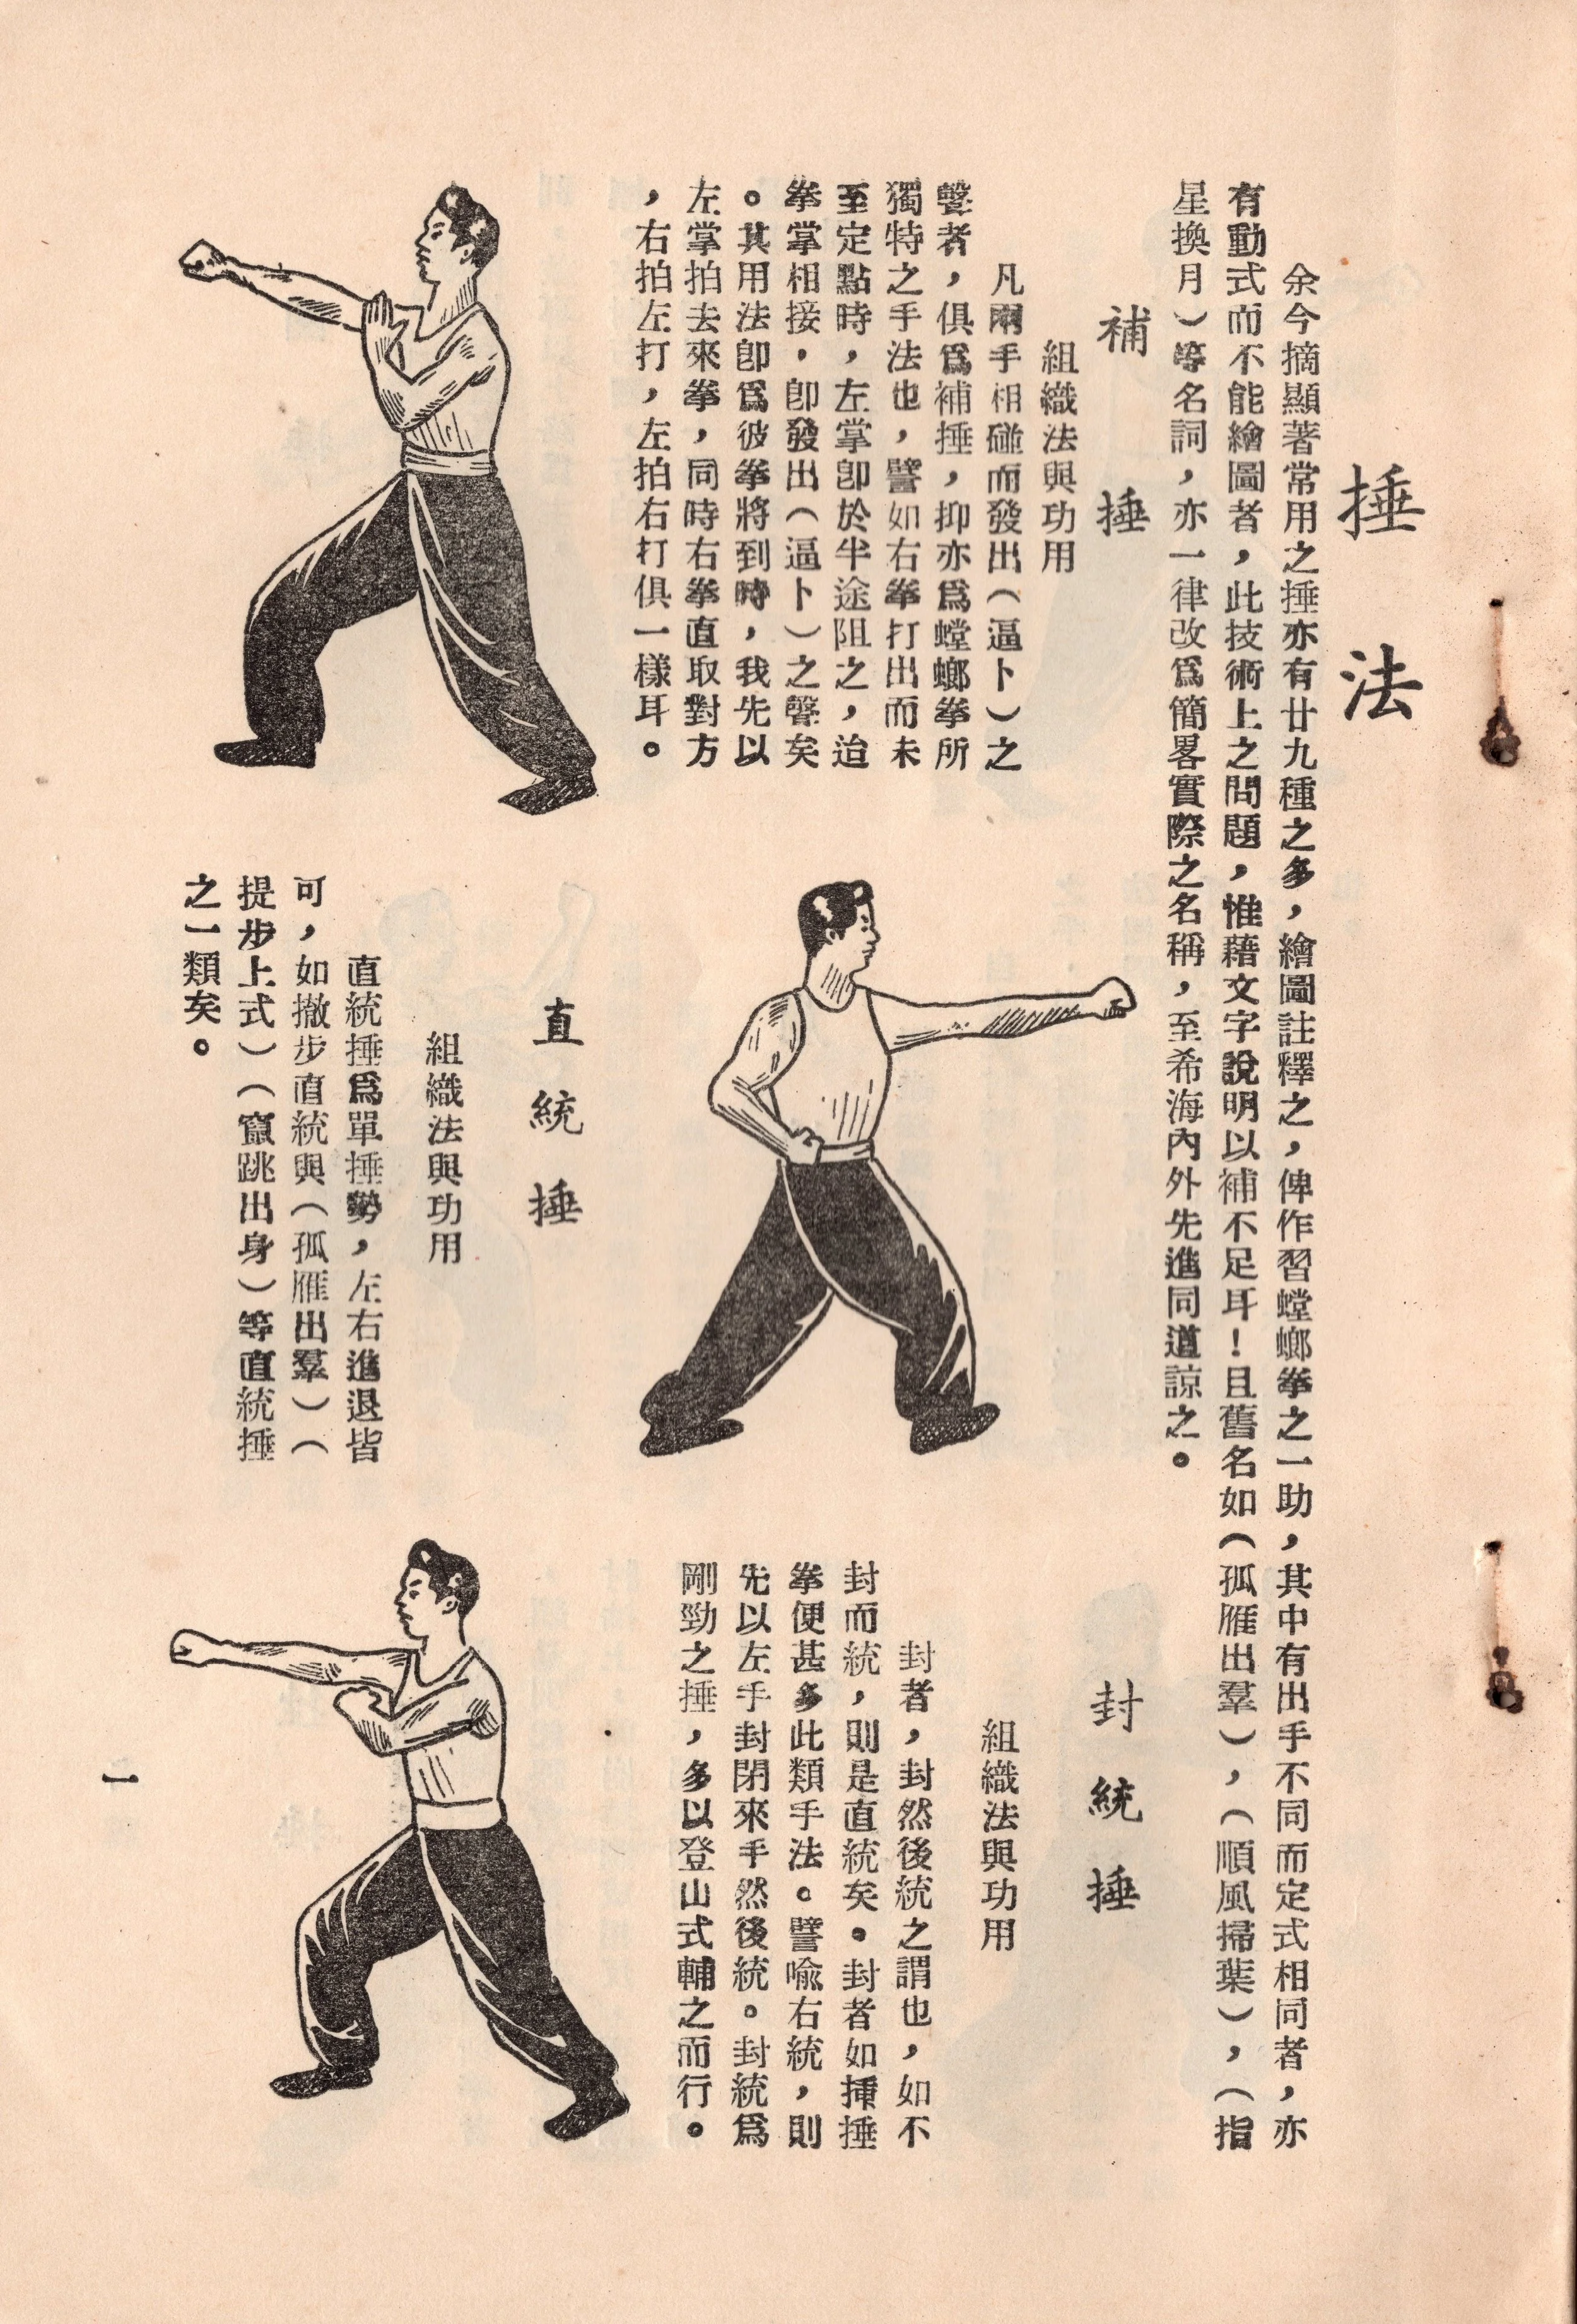 捶法
余今摘顯著常用之捶亦有廿九種之多，繪圖註釋之，俾作習螳螂拳之一助，其中有出手不同而定式相同者，亦
有動式而不能繪圖者，此技術上之問題，惟藉文字說明以補不足耳！且舊名如（孤雁出羣），（順風掃葉），（指
星換月）等名詞，亦一律改爲簡畧實際之名稱，至希海內外先進同道諒之。
補捶
組織法與功用
凡兩手相碰而發出（逼卜）之
聲者，俱爲補捶，抑亦爲螳螂拳所
獨特之手法也，譬如右拳打出而未
至定點時，左掌卽於半途阻之，迨
拳掌相接，卽發出（逼卜）之聲矣
。其用法卽爲彼拳將到時，我先以
左掌拍去來拳，同時右拳直取對方
，右拍左打，左拍右打俱一樣耳。
直統捶
組織法與功用
直統捶爲單捶勢，左右進退皆
可，如撤步直統與（孤雁出羣）（
提步上式）（竄跳出身）等直統捶
之一類矣。
封統捶
組織法與功用
封者，封然後統之謂也，如不
封而統，則是直統矣。封者如揷捶
拳便甚多此類手法。譬喻右統，則
先以左手封閉來手然後統。封統爲
剛勁之捶，多以登山式輔之而行。
一